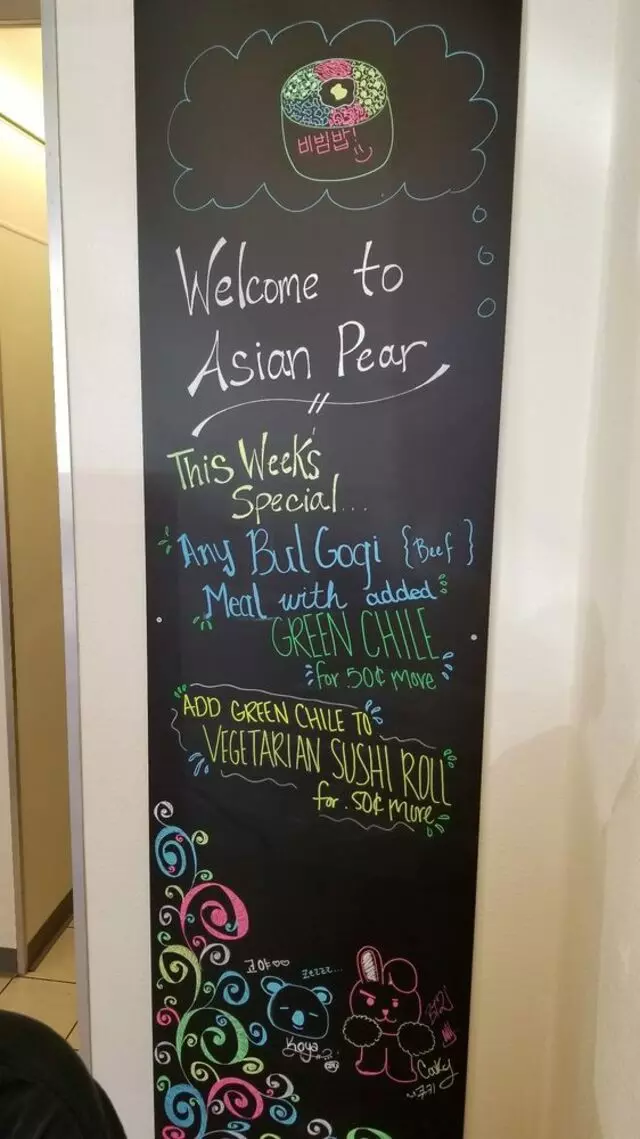 비빔밥!
Welcome to
Asian Pear
This Week's
Special...
Any Bul Gogi {Beef}
Meal with added
GREEN CHILE
for .50¢ more
ADD GREEN CHILE TO
VEGETARIAN SUSHI ROLL
for .50¢ more
코야♡♡
Zezzz...
Koya
BT21
Cooky
~쿠키